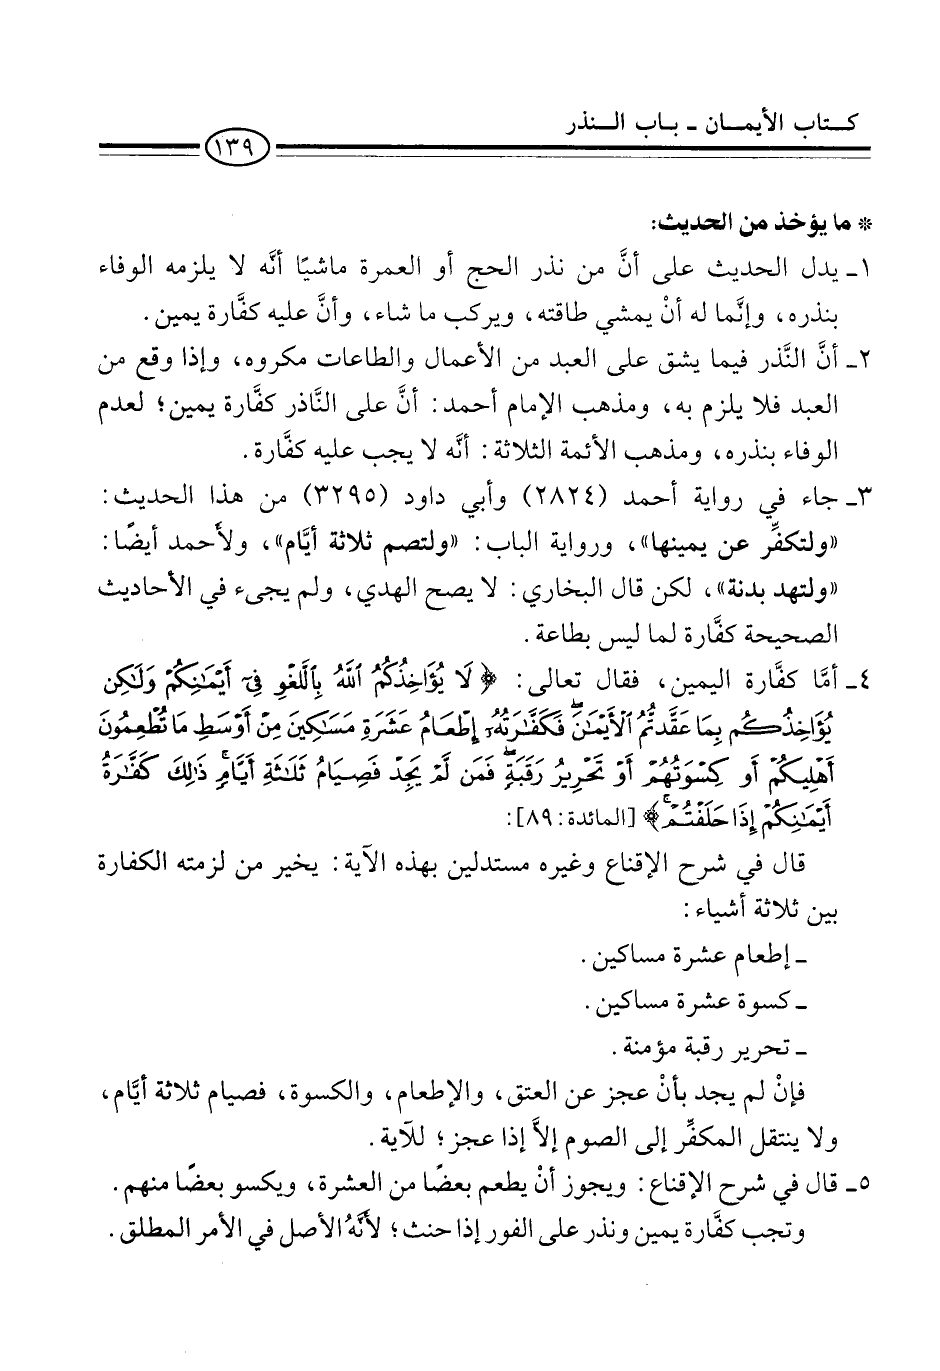 كتاب الأيمان - باب النذر
١٣٩
* ما يؤخذ من الحديث:
١- يدل الحديث على أنَّ من نذر الحج أو العمرة ماشيًا أنَّه لا يلزمه الوفاء
بنذره، وإنَّما له أنْ يمشي طاقته، ويركب ما شاء، وأنَّ عليه كفَّارة يمين.
٢- أنَّ النَّذر فيما يشق على العبد من الأعمال والطاعات مكروه، وإذا وقع من
العبد فلا يلزم به، ومذهب الإمام أحمد: أنَّ على النَّاذر كفَّارة يمين؛ لعدم
الوفاء بنذره، ومذهب الأئمة الثلاثة: أنَّه لا يجب عليه كفَّارة.
٣- جاء في رواية أحمد (٢٨٢٤) وأبي داود (٣٢٩٥) من هذا الحديث:
«ولتكفِّر عن يمينها»، ورواية الباب: «ولتصم ثلاثة أيَّام»، ولأحمد أيضًا:
«ولتهد بدنة»، لكن قال البخاري: لا يصح الهدي، ولم يجىء في الأحاديث
الصحيحة كفَّارة لما ليس بطاعة.
٤- أمَّا كفَّارة اليمين، فقال تعالى: ﴿لَا يُؤَاخِذُكُمُ ٱللَّهُ بِٱللَّغْوِ فِىٓ أَيْمَٰنِكُمْ وَلَٰكِن
يُؤَاخِذُكُم بِمَا عَقَّدتُّمُ ٱلْأَيْمَٰنَ ۖ فَكَفَّٰرَتُهُۥٓ إِطْعَامُ عَشَرَةِ مَسَٰكِينَ مِنْ أَوْسَطِ مَا تُطْعِمُونَ
أَهْلِيكُمْ أَوْ كِسْوَتُهُمْ أَوْ تَحْرِيرُ رَقَبَةٍ ۖ فَمَن لَّمْ يَجِدْ فَصِيَامُ ثَلَٰثَةِ أَيَّامٍ ۚ ذَٰلِكَ كَفَّٰرَةُ
أَيْمَٰنِكُمْ إِذَا حَلَفْتُمْ ۚ﴾ [المائدة: ٨٩]:
قال في شرح الإقناع وغيره مستدلين بهذه الآية: يخير من لزمته الكفارة
بين ثلاثة أشياء:
- إطعام عشرة مساكين.
- كسوة عشرة مساكين.
- تحرير رقبة مؤمنة.
فإنْ لم يجد بأنْ عجز عن العتق، والإطعام، والكسوة، فصيام ثلاثة أيَّام،
ولا ينتقل المكفِّر إلى الصوم إلاَّ إذا عجز؛ للآية.
٥- قال في شرح الإقناع: ويجوز أنْ يطعم بعضًا من العشرة، ويكسو بعضًا منهم.
وتجب كفَّارة يمين ونذر على الفور إذا حنث؛ لأنَّهُ الأصل في الأمر المطلق.